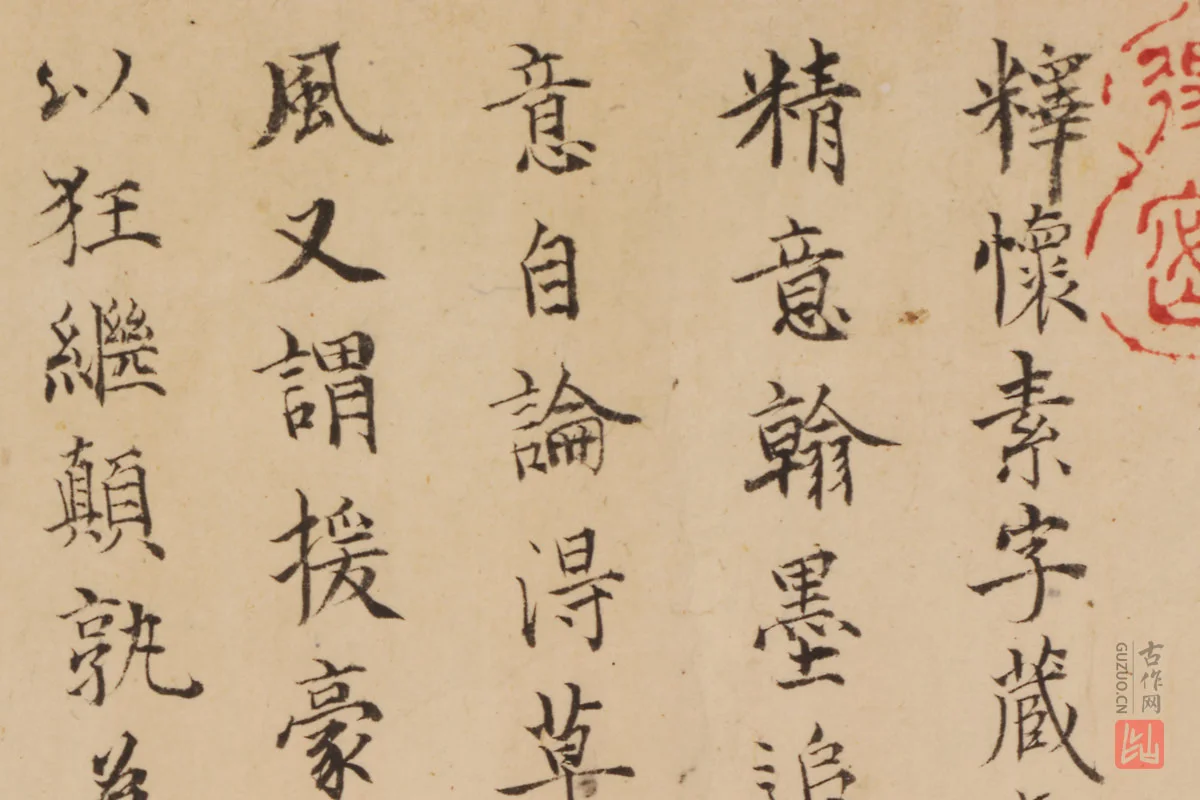 釋懷素字藏
精意翰墨追
意自論得草
風又謂援豪
以狂繼顛孰為
古作网
GUZUO.CN